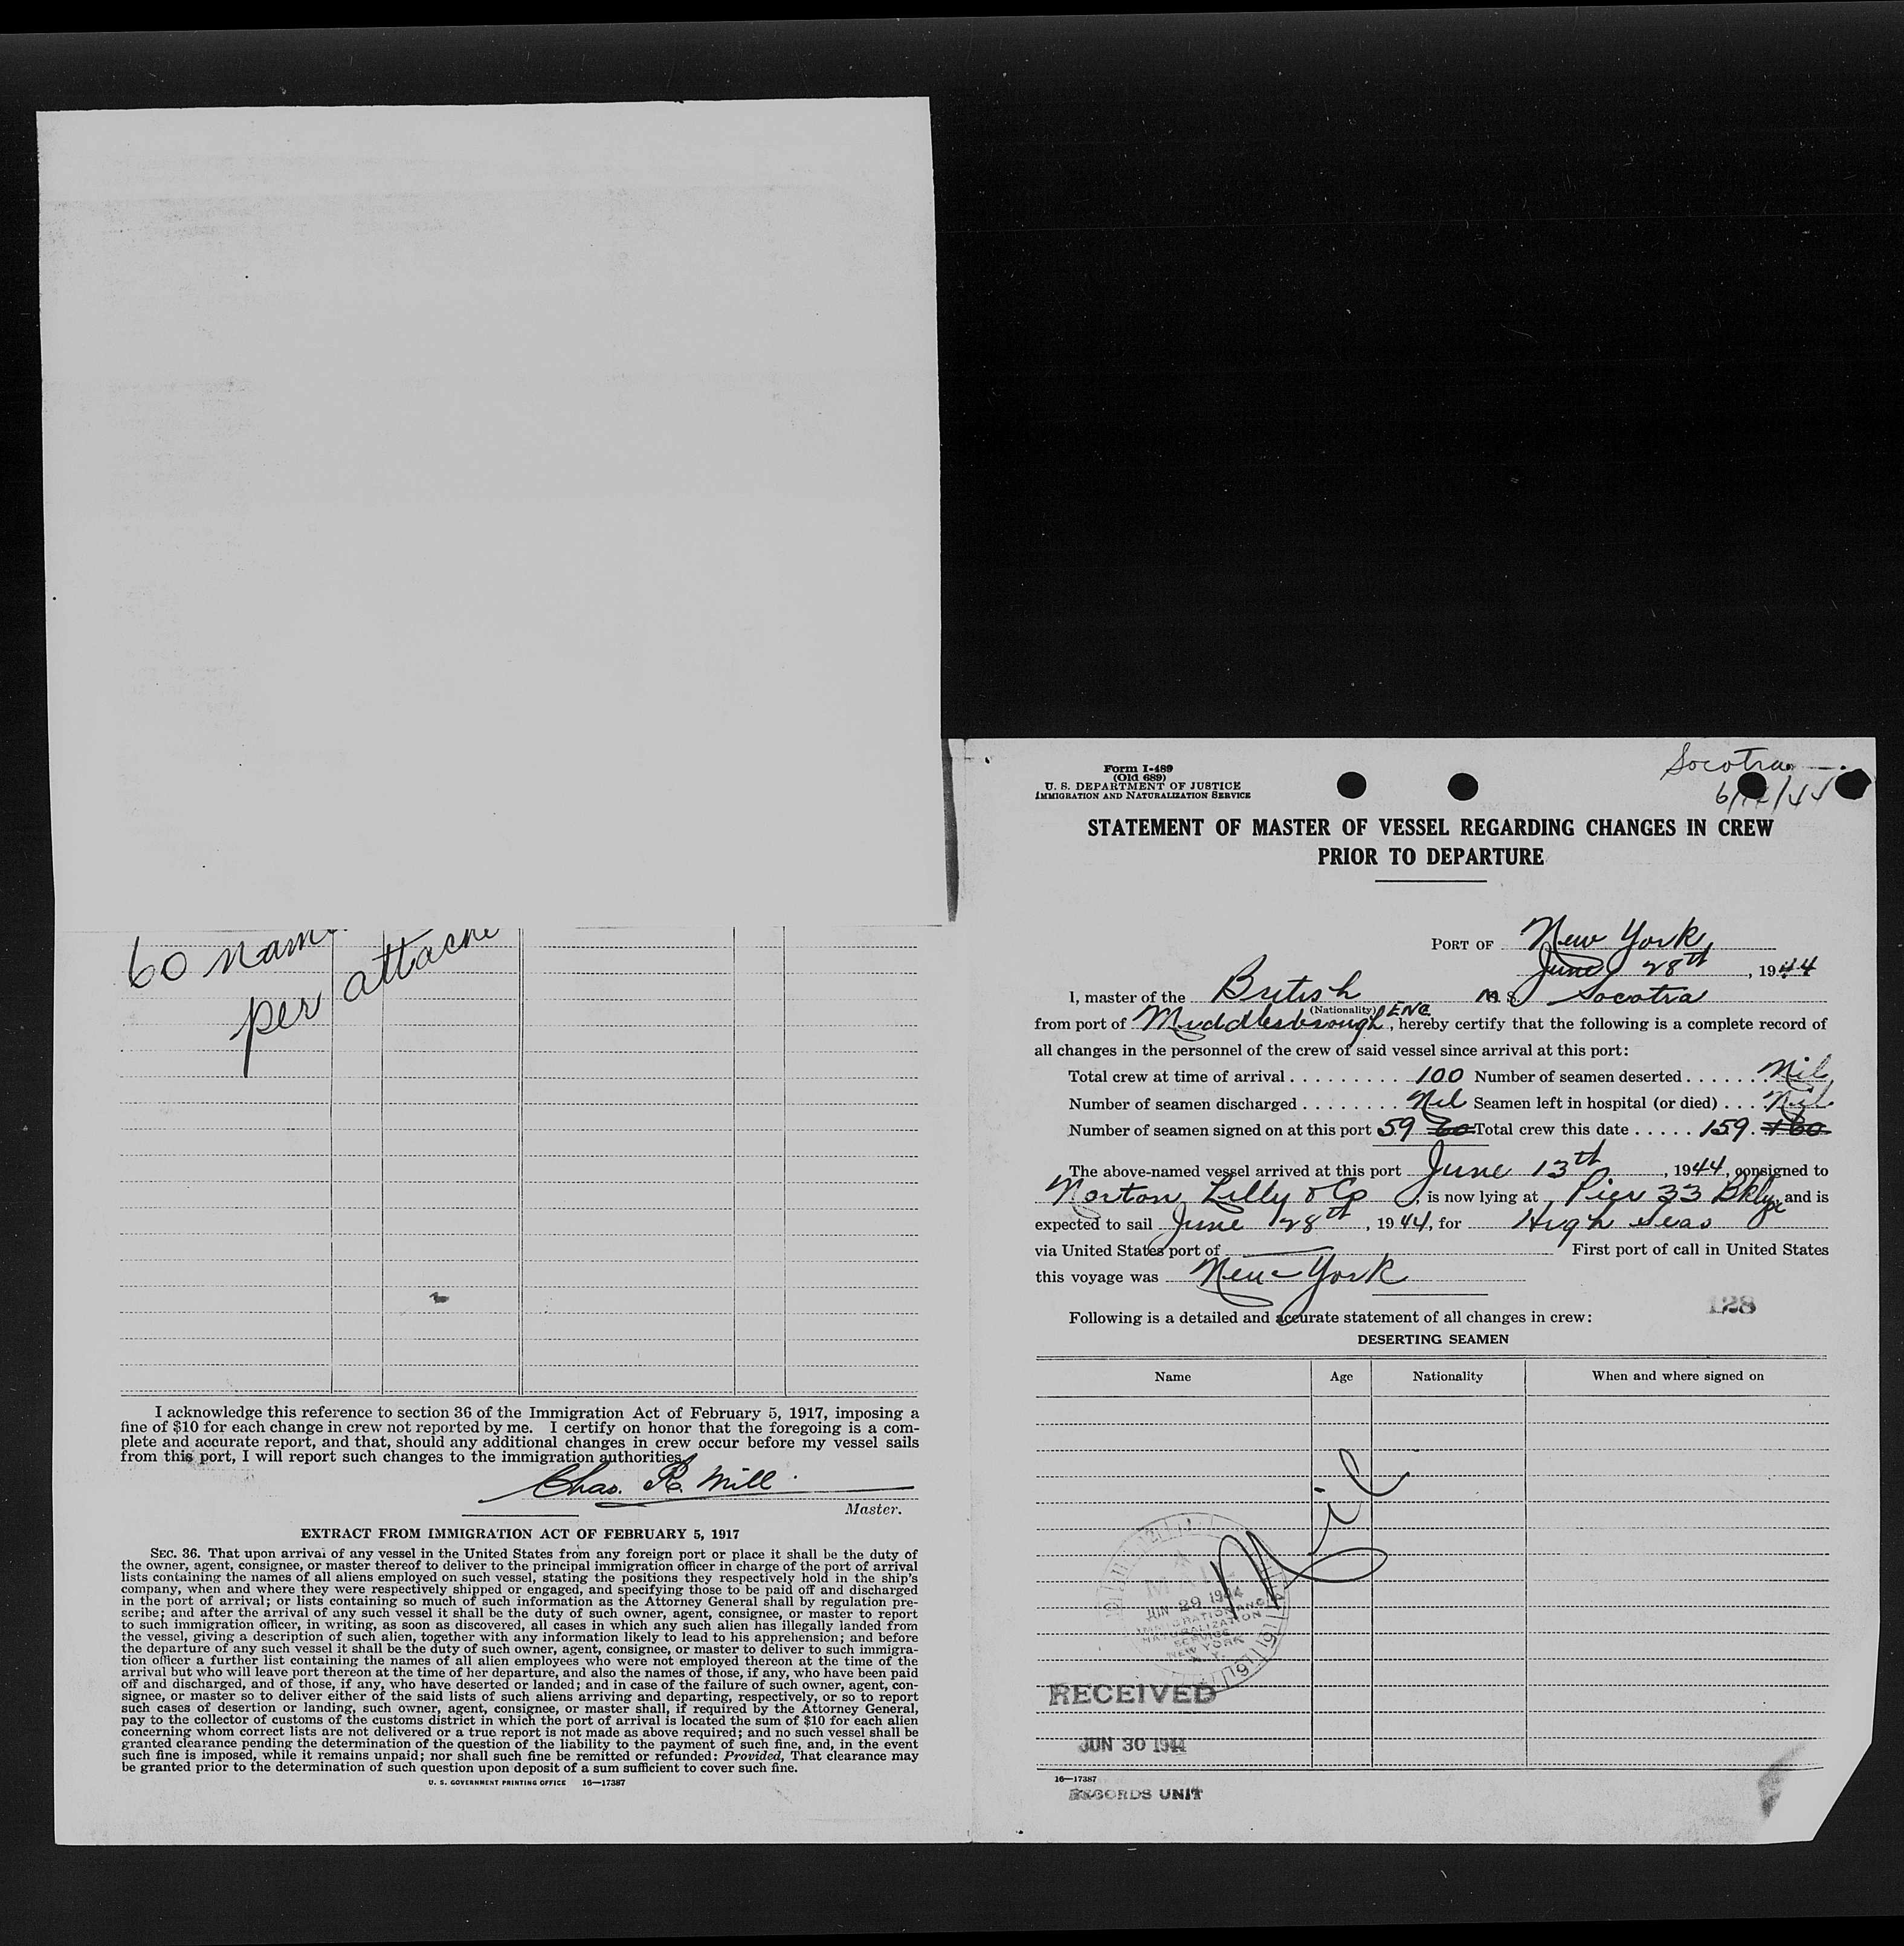 60 nam
per attache
I acknowledge this reference to section 36 of the Immigration Act of February 5, 1917, imposing a
fine of $10 for each change in crew not reported by me. I certify on honor that the foregoing is a com-
plete and accurate report, and that, should any additional changes in crew occur before my vessel sails
from this port, I will report such changes to the immigration authorities.
Chas. R. Mill
Master.
EXTRACT FROM IMMIGRATION ACT OF FEBRUARY 5, 1917
SEC. 36. That upon arrival of any vessel in the United States from any foreign port or place it shall be the duty of
the owner, agent, consignee, or master thereof to deliver to the principal immigration officer in charge of the port of arrival
lists containing the names of all aliens employed on such vessel, stating the positions they respectively hold in the ship's
company, when and where they were respectively shipped or engaged, and specifying those to be paid off and discharged
in the port of arrival; or lists containing so much of such information as the Attorney General shall by regulation pre-
scribe; and after the arrival of any such vessel it shall be the duty of such owner, agent, consignee, or master to report
to such immigration officer, in writing, as soon as discovered, all cases in which any such alien has illegally landed from
the vessel, giving a description of such alien, together with any information likely to lead to his apprehension; and before
the departure of any such vessel it shall be the duty of such owner, agent, consignee, or master to deliver to such immigra-
tion officer a further list containing the names of all alien employees who were not employed thereon at the time of the
arrival but who will leave port thereon at the time of her departure, and also the names of those, if any, who have been paid
off and discharged, and of those, if any, who have deserted or landed; and in case of the failure of such owner, agent, con-
signee, or master so to deliver either of the said lists of such aliens arriving and departing, respectively, or so to report
such cases of desertion or landing, such owner, agent, consignee, or master shall, if required by the Attorney General,
pay to the collector of customs of the customs district in which the port of arrival is located the sum of $10 for each alien
concerning whom correct lists are not delivered or a true report is not made as above required; and no such vessel shall be
granted clearance pending the determination of the question of the liability to the payment of such fine, and, in the event
such fine is imposed, while it remains unpaid; nor shall such fine be remitted or refunded: Provided, That clearance may
be granted prior to the determination of such question upon deposit of a sum sufficient to cover such fine.
U. S. GOVERNMENT PRINTING OFFICE 16—17387
Form I-489
(Old 689)
U. S. DEPARTMENT OF JUSTICE
IMMIGRATION AND NATURALIZATION SERVICE
Socotra
STATEMENT OF MASTER OF VESSEL REGARDING CHANGES IN CREW
PRIOR TO DEPARTURE
PORT OF New York,
June 28th, 1944
I, master of the British M. S. Socotra
(Nationality)
from port of Middlesbrough ENG, hereby certify that the following is a complete record of
all changes in the personnel of the crew of said vessel since arrival at this port:
Total crew at time of arrival . . . . . . . . . . 100 Number of seamen deserted . . . . . . Nil
Number of seamen discharged . . . . . . . . Nil Seamen left in hospital (or died) . . . Nil
Number of seamen signed on at this port 59 60 Total crew this date . . . . . 159. 160
The above-named vessel arrived at this port June 13th, 1944, consigned to
Norton, Lilly & Co, is now lying at Pier 33 Bklyn, and is
expected to sail June 28th, 1944, for High Seas
via United States port of — First port of call in United States
this voyage was New York
128
Following is a detailed and accurate statement of all changes in crew:
DESERTING SEAMEN
Name Age Nationality When and where signed on
Nil
MAIL
JUN 29 1944
IMMIGRATION AND
NATURALIZATION
SERVICE
NEW YORK
N. Y.
RECEIVED
JUN 30 1944
16—17387
RECORDS UNIT